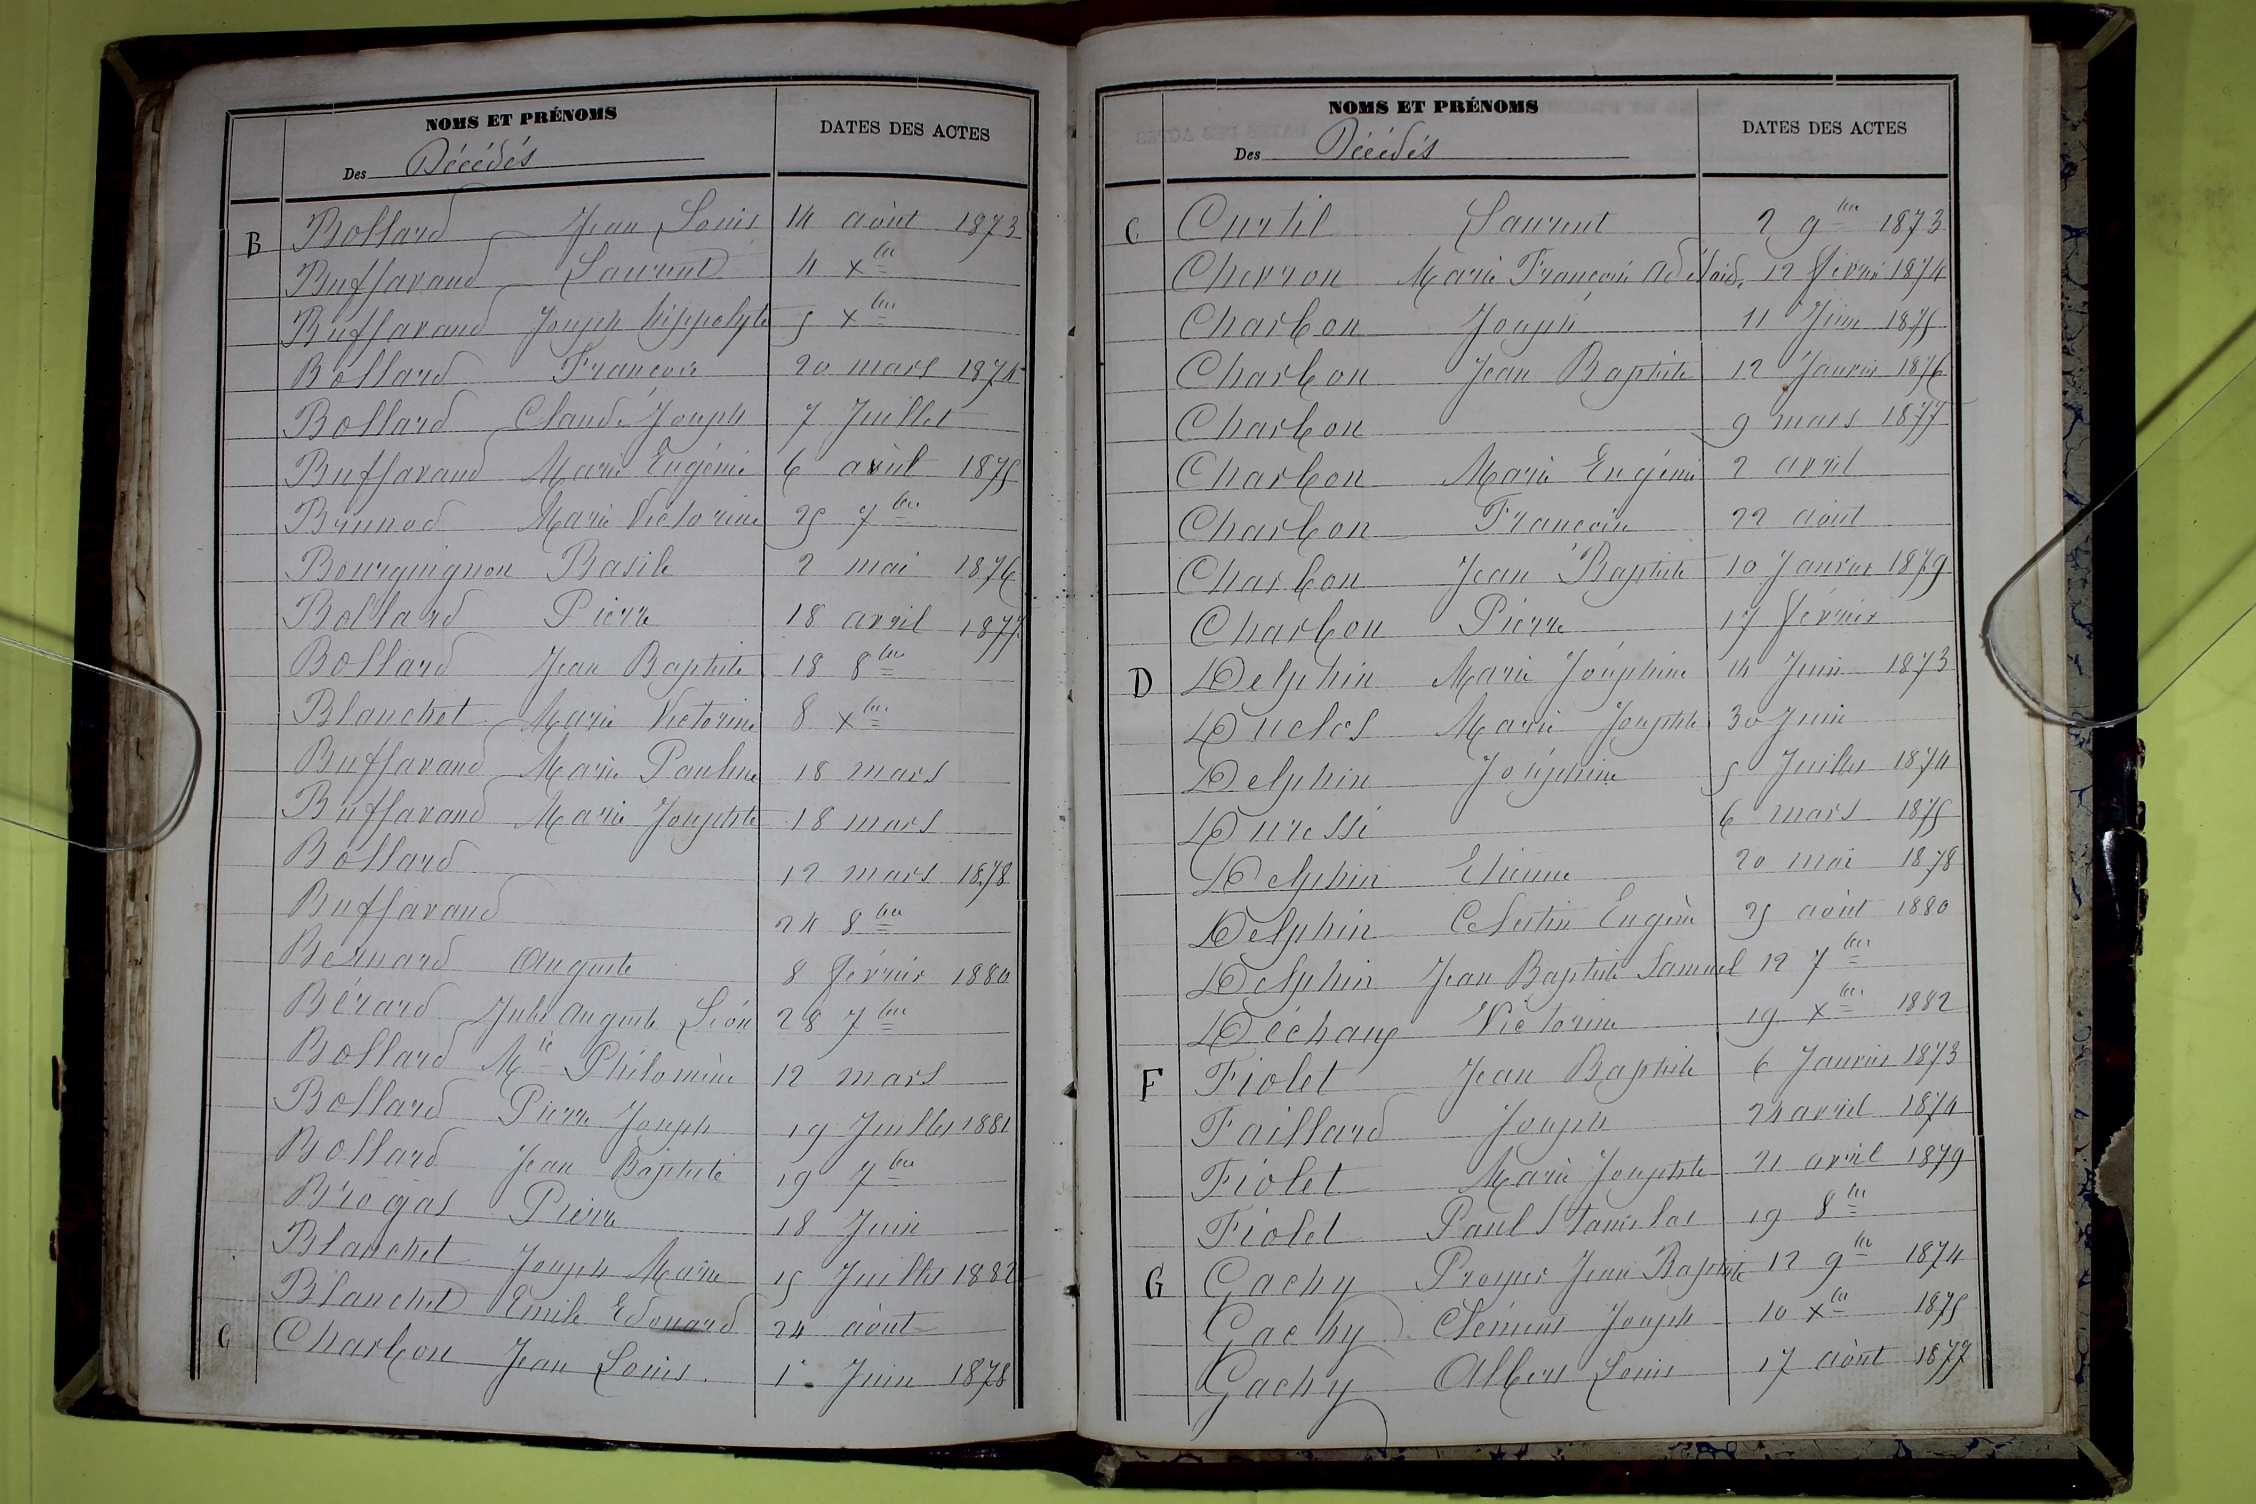 NOMS ET PRÉNOMS
DATES DES ACTES
Des Décédés
B Bollard Jean Louis 14 août 1873
Buffavand Laurent 4 xbre
Buffavand Joseph hippolyte 5 xbre
Bollard François 20 mars 1874
Bollard Claude Joseph 7 Juillet
Buffavand Marie Eugénie 6 avril 1875
Brunod Marie Victorine 25 7bre
Bourguignon Basile 2 mai 1876
Bollard Pierre 18 avril 1877
Bollard Jean Baptiste 18 8bre
Blanchet Marie Victorine 8 xbre
Buffavand Marie Pauline 18 mars
Buffavand Marie Josephte 18 mars
Bollard 12 mars 1878
Buffavand 24 8bre
Bernard Auguste 8 février 1880
Bérard Jules Auguste Léon 28 7bre
Bollard Mie Philomène 12 mars
Bollard Pierre Joseph 19 Juillet 1881
Bollard Jean Baptiste 19 7bre
Brogas Pierre 18 Juin
Blanchet Joseph Marie 15 Juillet 1882
Blanchet Emile Edouard 24 août
C Charbon Jean Louis. 1er Juin 1878
NOMS ET PRÉNOMS
DATES DES ACTES
Des Décédés
C Curtil Laurent 2 9bre 1873
Chevron Marie Françoise Adélaide 12 février 1874
Charbon Joseph 11 Juin 1875
Charbon Jean Baptiste 12 Janvier 1876
Charbon 9 mars 1877
Charbon Marie Eugénie 2 avril
Charbon Françoise 22 août
Charbon Jean Baptiste 10 Janvier 1879
Charbon Pierre 17 février
D Delphin Marie Joséphine 14 Juin 1873
Duclos Marie Josephte 30 Juin
Delphin Joséphine 5 Juillet 1874
Duressi 6 mars 1875
Delphin Etienne 20 mai 1878
Delphin Celestin Eugène 25 août 1880
Delphin Jean Baptiste Samuel 12 7bre
Déchaux Victorine 19 xbre 1882
F Fiolet Jean Baptiste 6 Janvier 1873
Faillard Joseph 24 avril 1874
Fiolet Marie Josephte 21 avril 1879
Fiolet Paul Stanislas 19 8bre
G Gachy Prosper Jean Baptiste 12 9bre 1874
Gachy Clément Joseph 10 xbre 1875
Gachy Albert Louis 17 août 1877